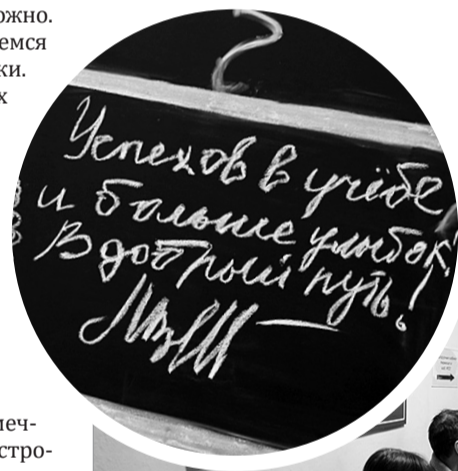 ожно.
емся
ки.
х
Успехов в учёбе
и больше улыбок!
В добрый путь!
меч-
стро-